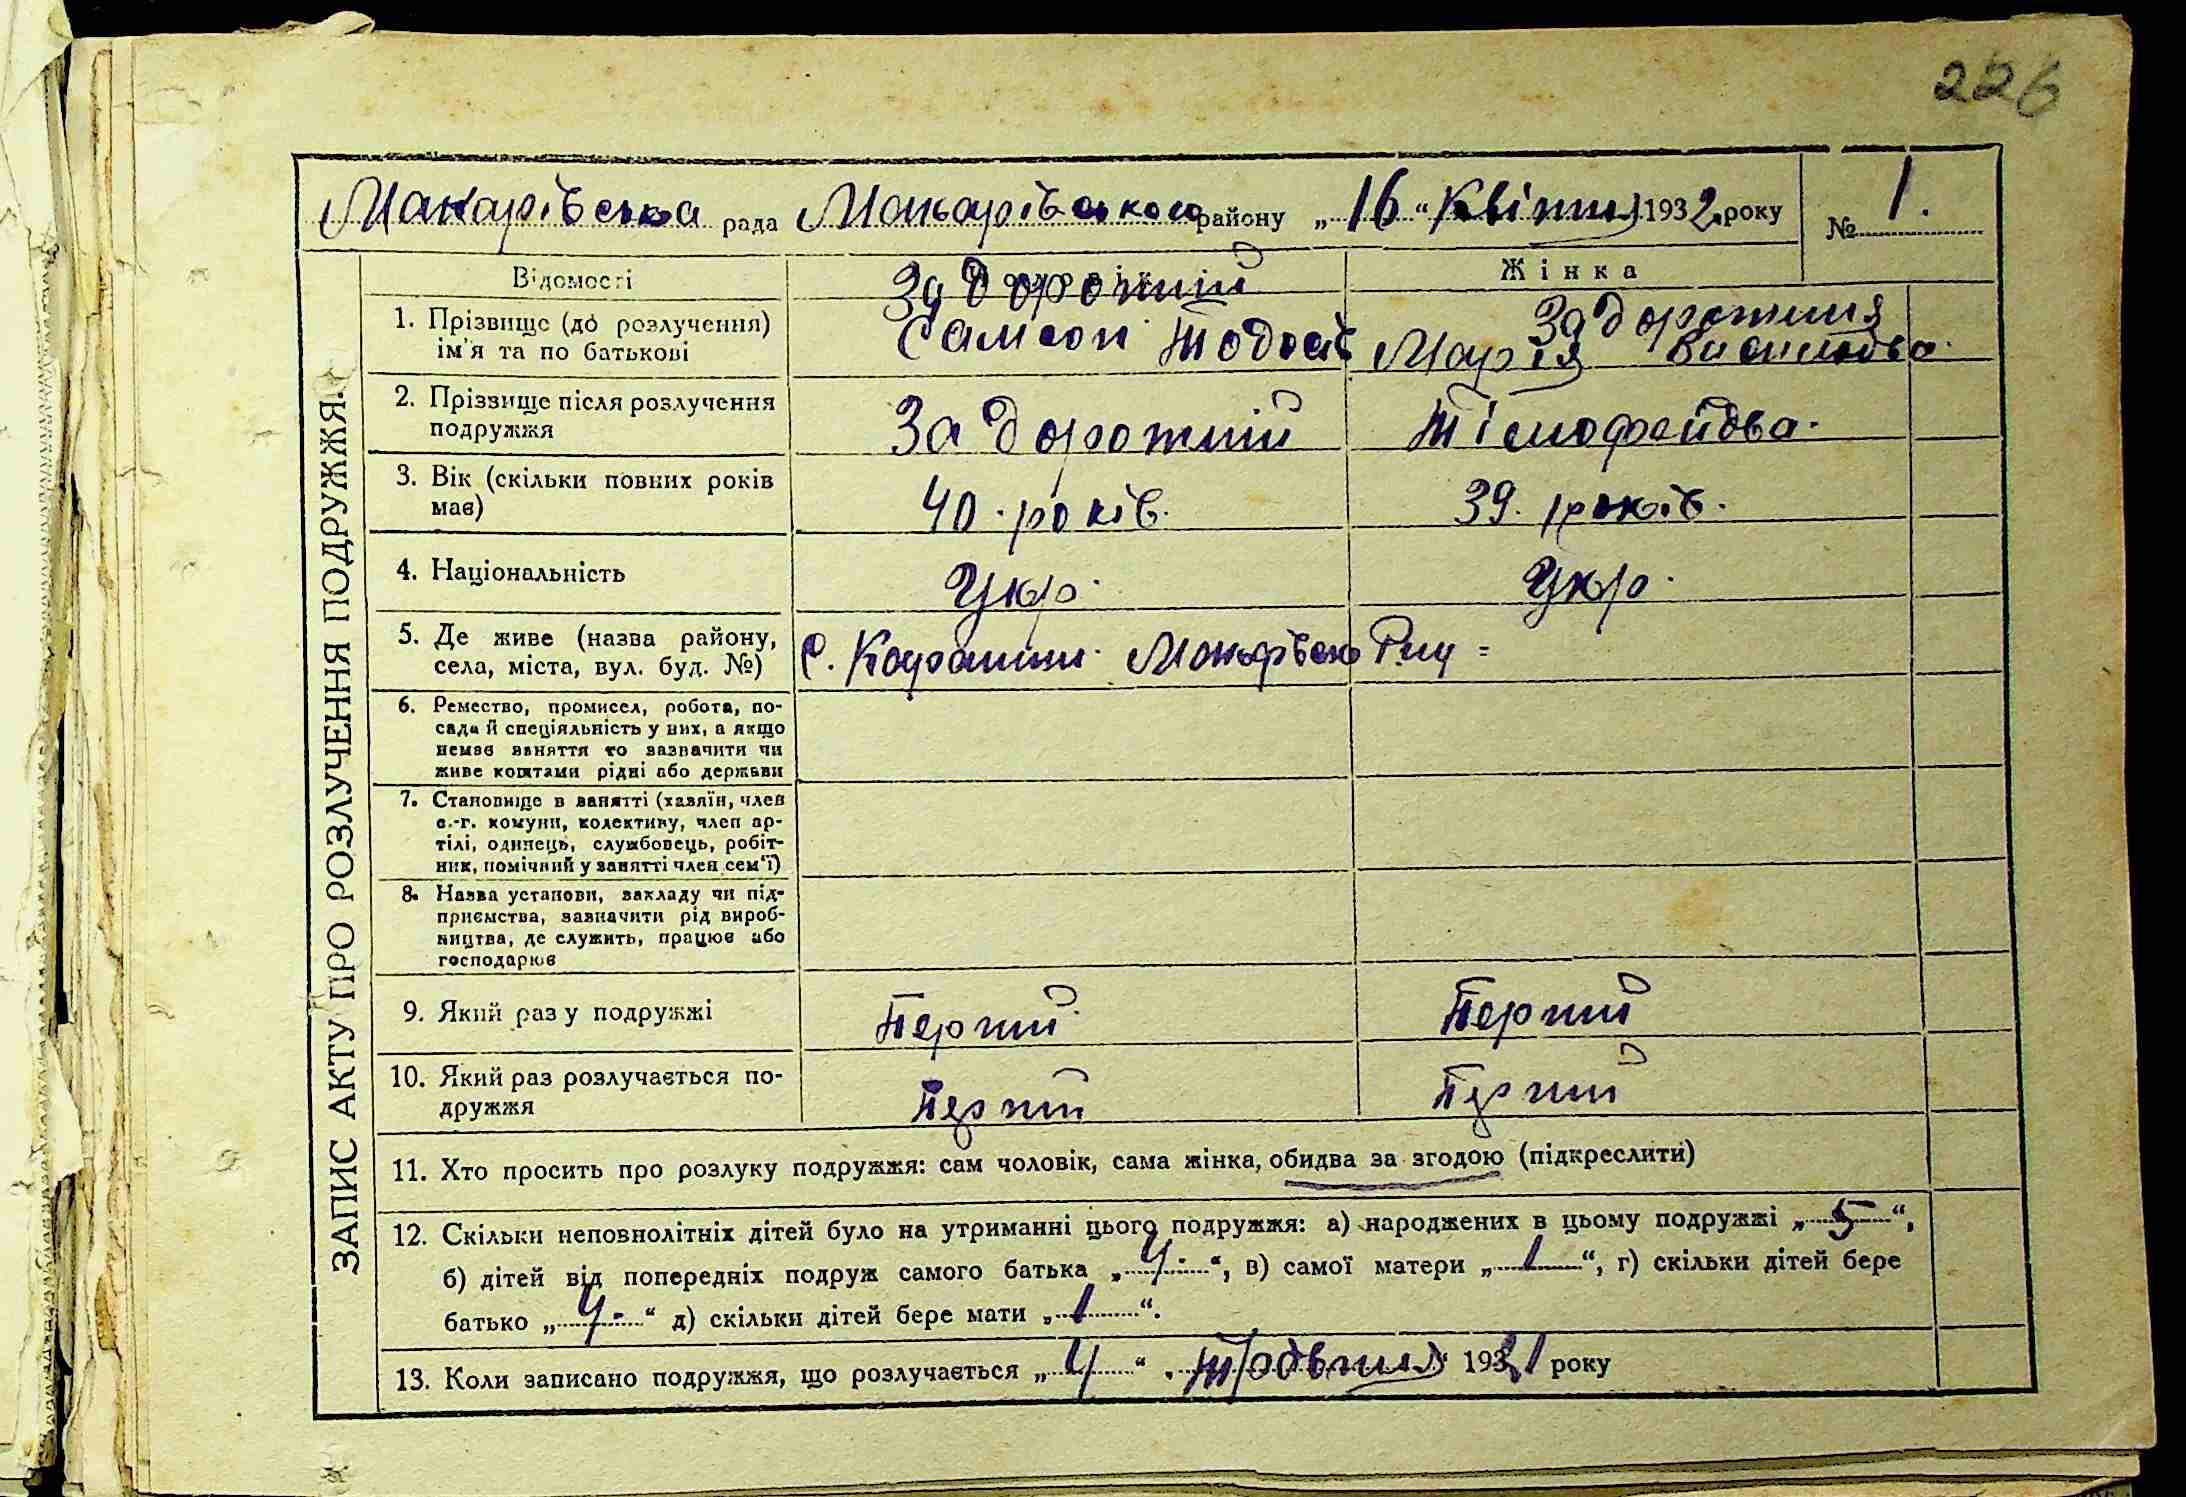 226
Макарівська рада Макарівського району „16“ Квітня 1932 року № 1.
ЗАПИС АКТУ ПРО РОЗЛУЧЕННЯ ПОДРУЖЖЯ.
Відомості Жінка
1. Прізвище (до розлучення) Задорожній Задорожня
ім'я та по батькові Самсон Тодос Марія Василівва.
2. Прізвище після розлучення
подружжя Задорожній Тімофейова.
3. Вік (скільки повних років
має) 40. років. 39. років.
4. Національність Укр. Укр.
5. Де живе (назва району,
села, міста, вул. буд. №) С. Карашин
6. Ремество, промисел, робота, по-
сада й спеціяльність у них, а якщо
немає заняття то зазначити чи
живе коштами рідні або держави
7. Становище в занятті (хазяїн, член
с.-г. комуни, колективу, член ар-
тілі, одинець, службовець, робіт-
ник, помічний у занятті член сем'ї)
8. Назва установи, закладу чи під-
приємства, зазначити рід вироб-
ництва, де служить, працює або
господарює
9. Який раз у подружжі Перший Перший
10. Який раз розлучається по-
дружжя Перший Перший
11. Хто просить про розлуку подружжя: сам чоловік, сама жінка, обидва за згодою (підкреслити)
12. Скільки неповнолітніх дітей було на утриманні цього подружжя: а) народжених в цьому подружжі „5“,
б) дітей від попередніх подруж самого батька „4“, в) самої матери „1“, г) скільки дітей бере
батько „4“ д) скільки дітей бере мати „1“.
13. Коли записано подружжя, що розлучається „4“ Травня 1921 року